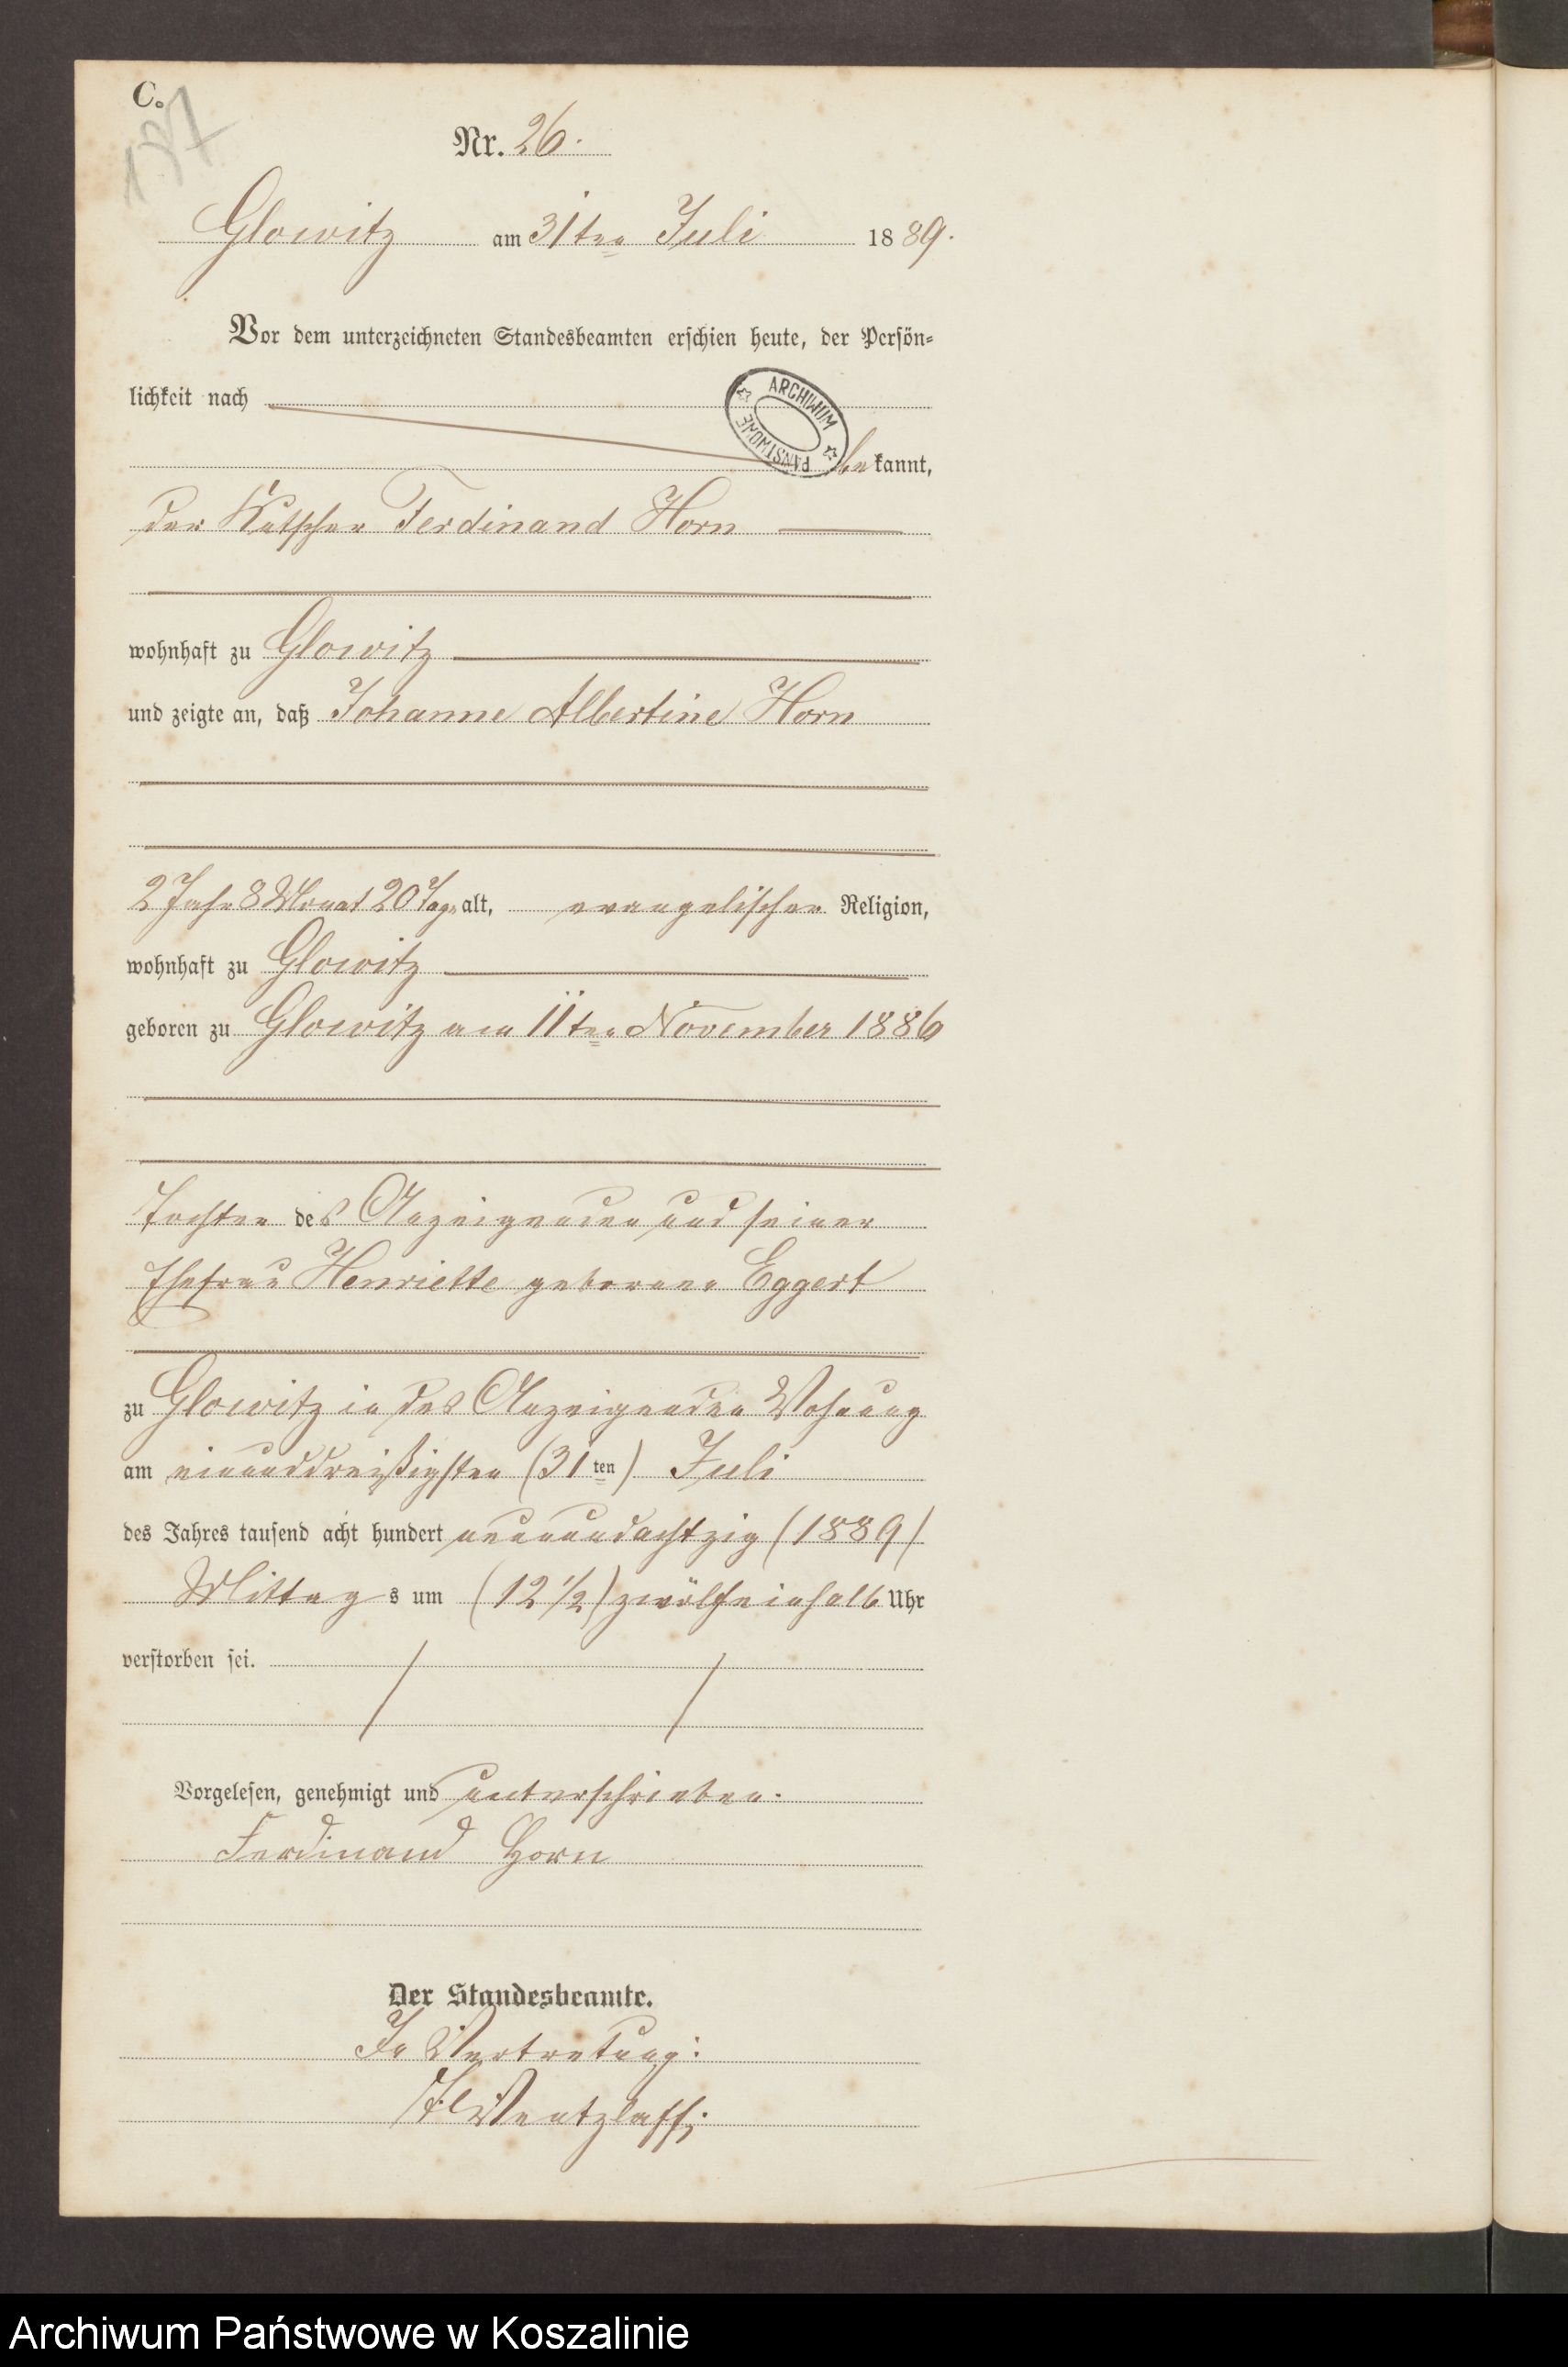 C.
187
Nr. 26.
Glowitz am 31ten Juli 1889.
Vor dem unterzeichneten Standesbeamten erschien heute, der Persön-
lichkeit nach
ARCHIWUM PAŃSTWOWE
bekannt,
der Kutscher Ferdinand Horn
wohnhaft zu Glowitz
und zeigte an, daß Johanne Albertine Horn
2 Jahr 8 Monat 20 Tage alt, evangelischer Religion,
wohnhaft zu Glowitz
geboren zu Glowitz am 11ten November 1886
Tochter des Anzeigenden und seiner
Ehefrau Henriette geborene Eggert
zu Glowitz in des Anzeigenden Wohnung
am einunddreißigsten (31ten) Juli
des Jahres tausend acht hundert neunundachtzig (1889)
Mittags um (12 1/2) zwölfeinhalb Uhr
verstorben sei.
Vorgelesen, genehmigt und unterschrieben.
Ferdinand Horn
Der Standesbeamte.
In Vertretung:
Wentzlaff.
Archiwum Państwowe w Koszalinie